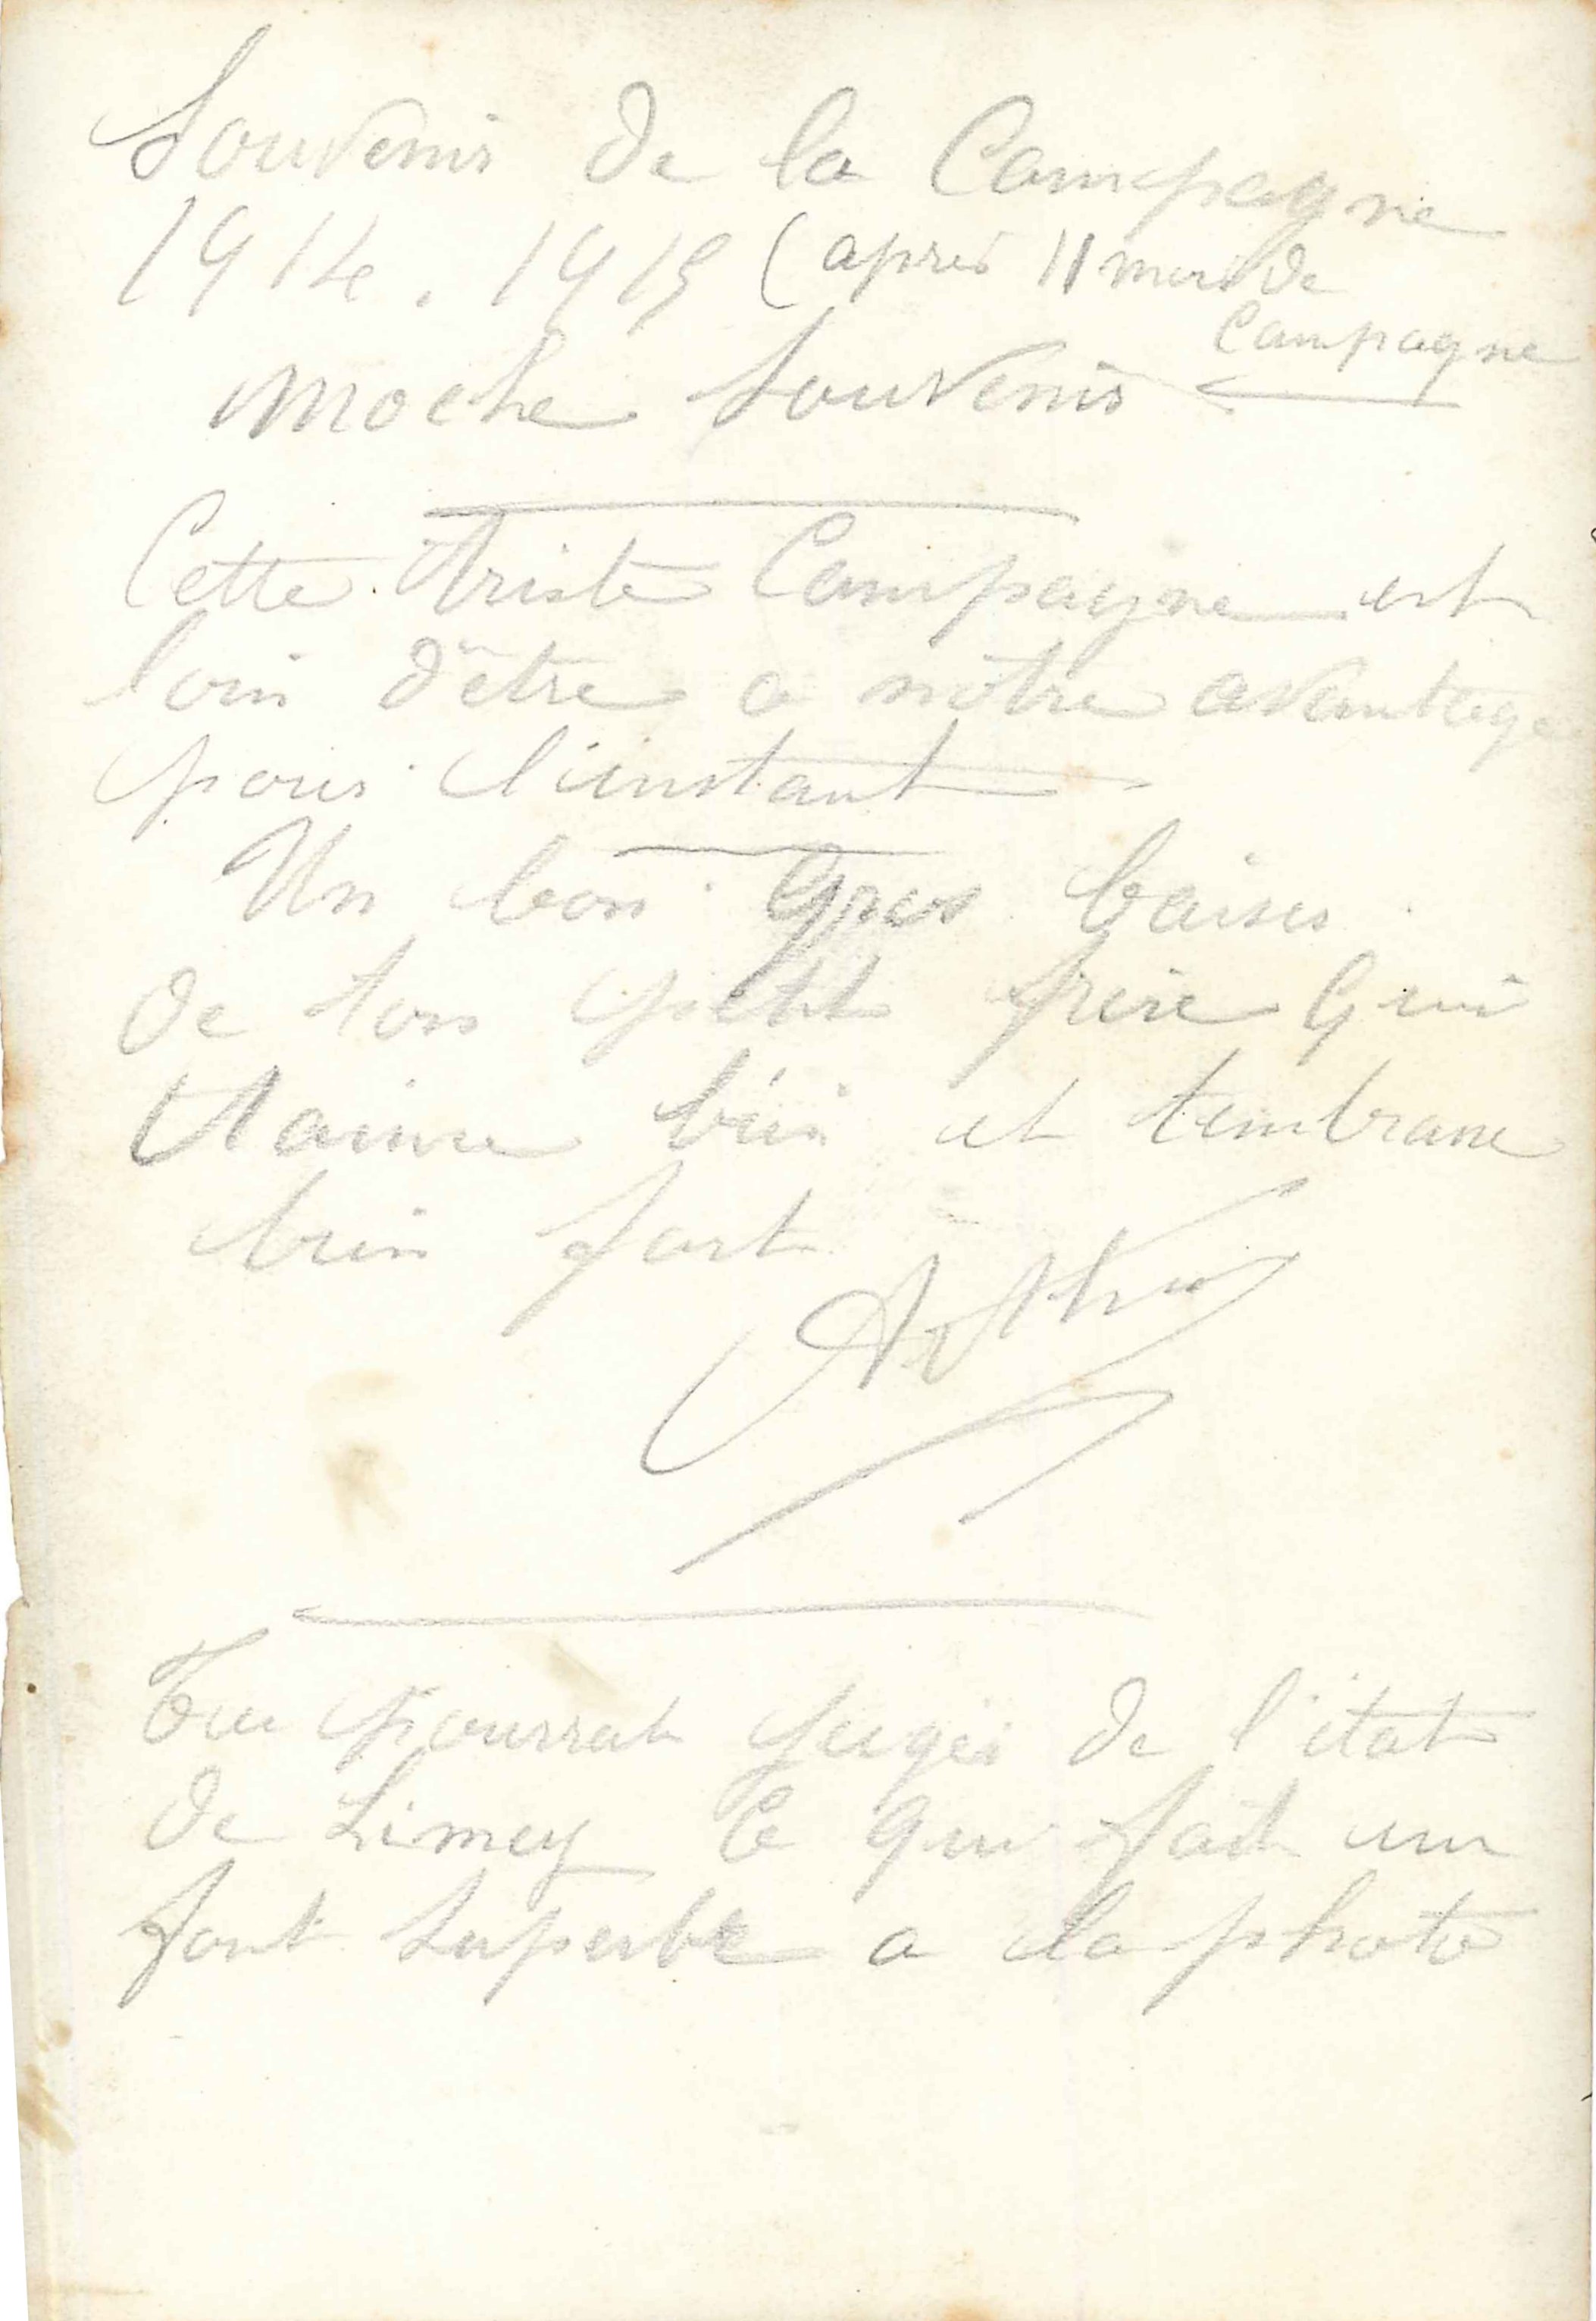 Souvenir de la Campagne
1914. 1915 (apres 11 mois de
Campagne
moche Souvenir
Cette triste Campagne est
loin d'être a nôtre avantage
pour l'instant
Un bon Gros baiser
de ton petit frère Qui
t'aime bien et t'embrasse
bien fort
Arthur
Tu pourrat juger de l'état
de Limey Ce qui fait un
font superbe a la photo